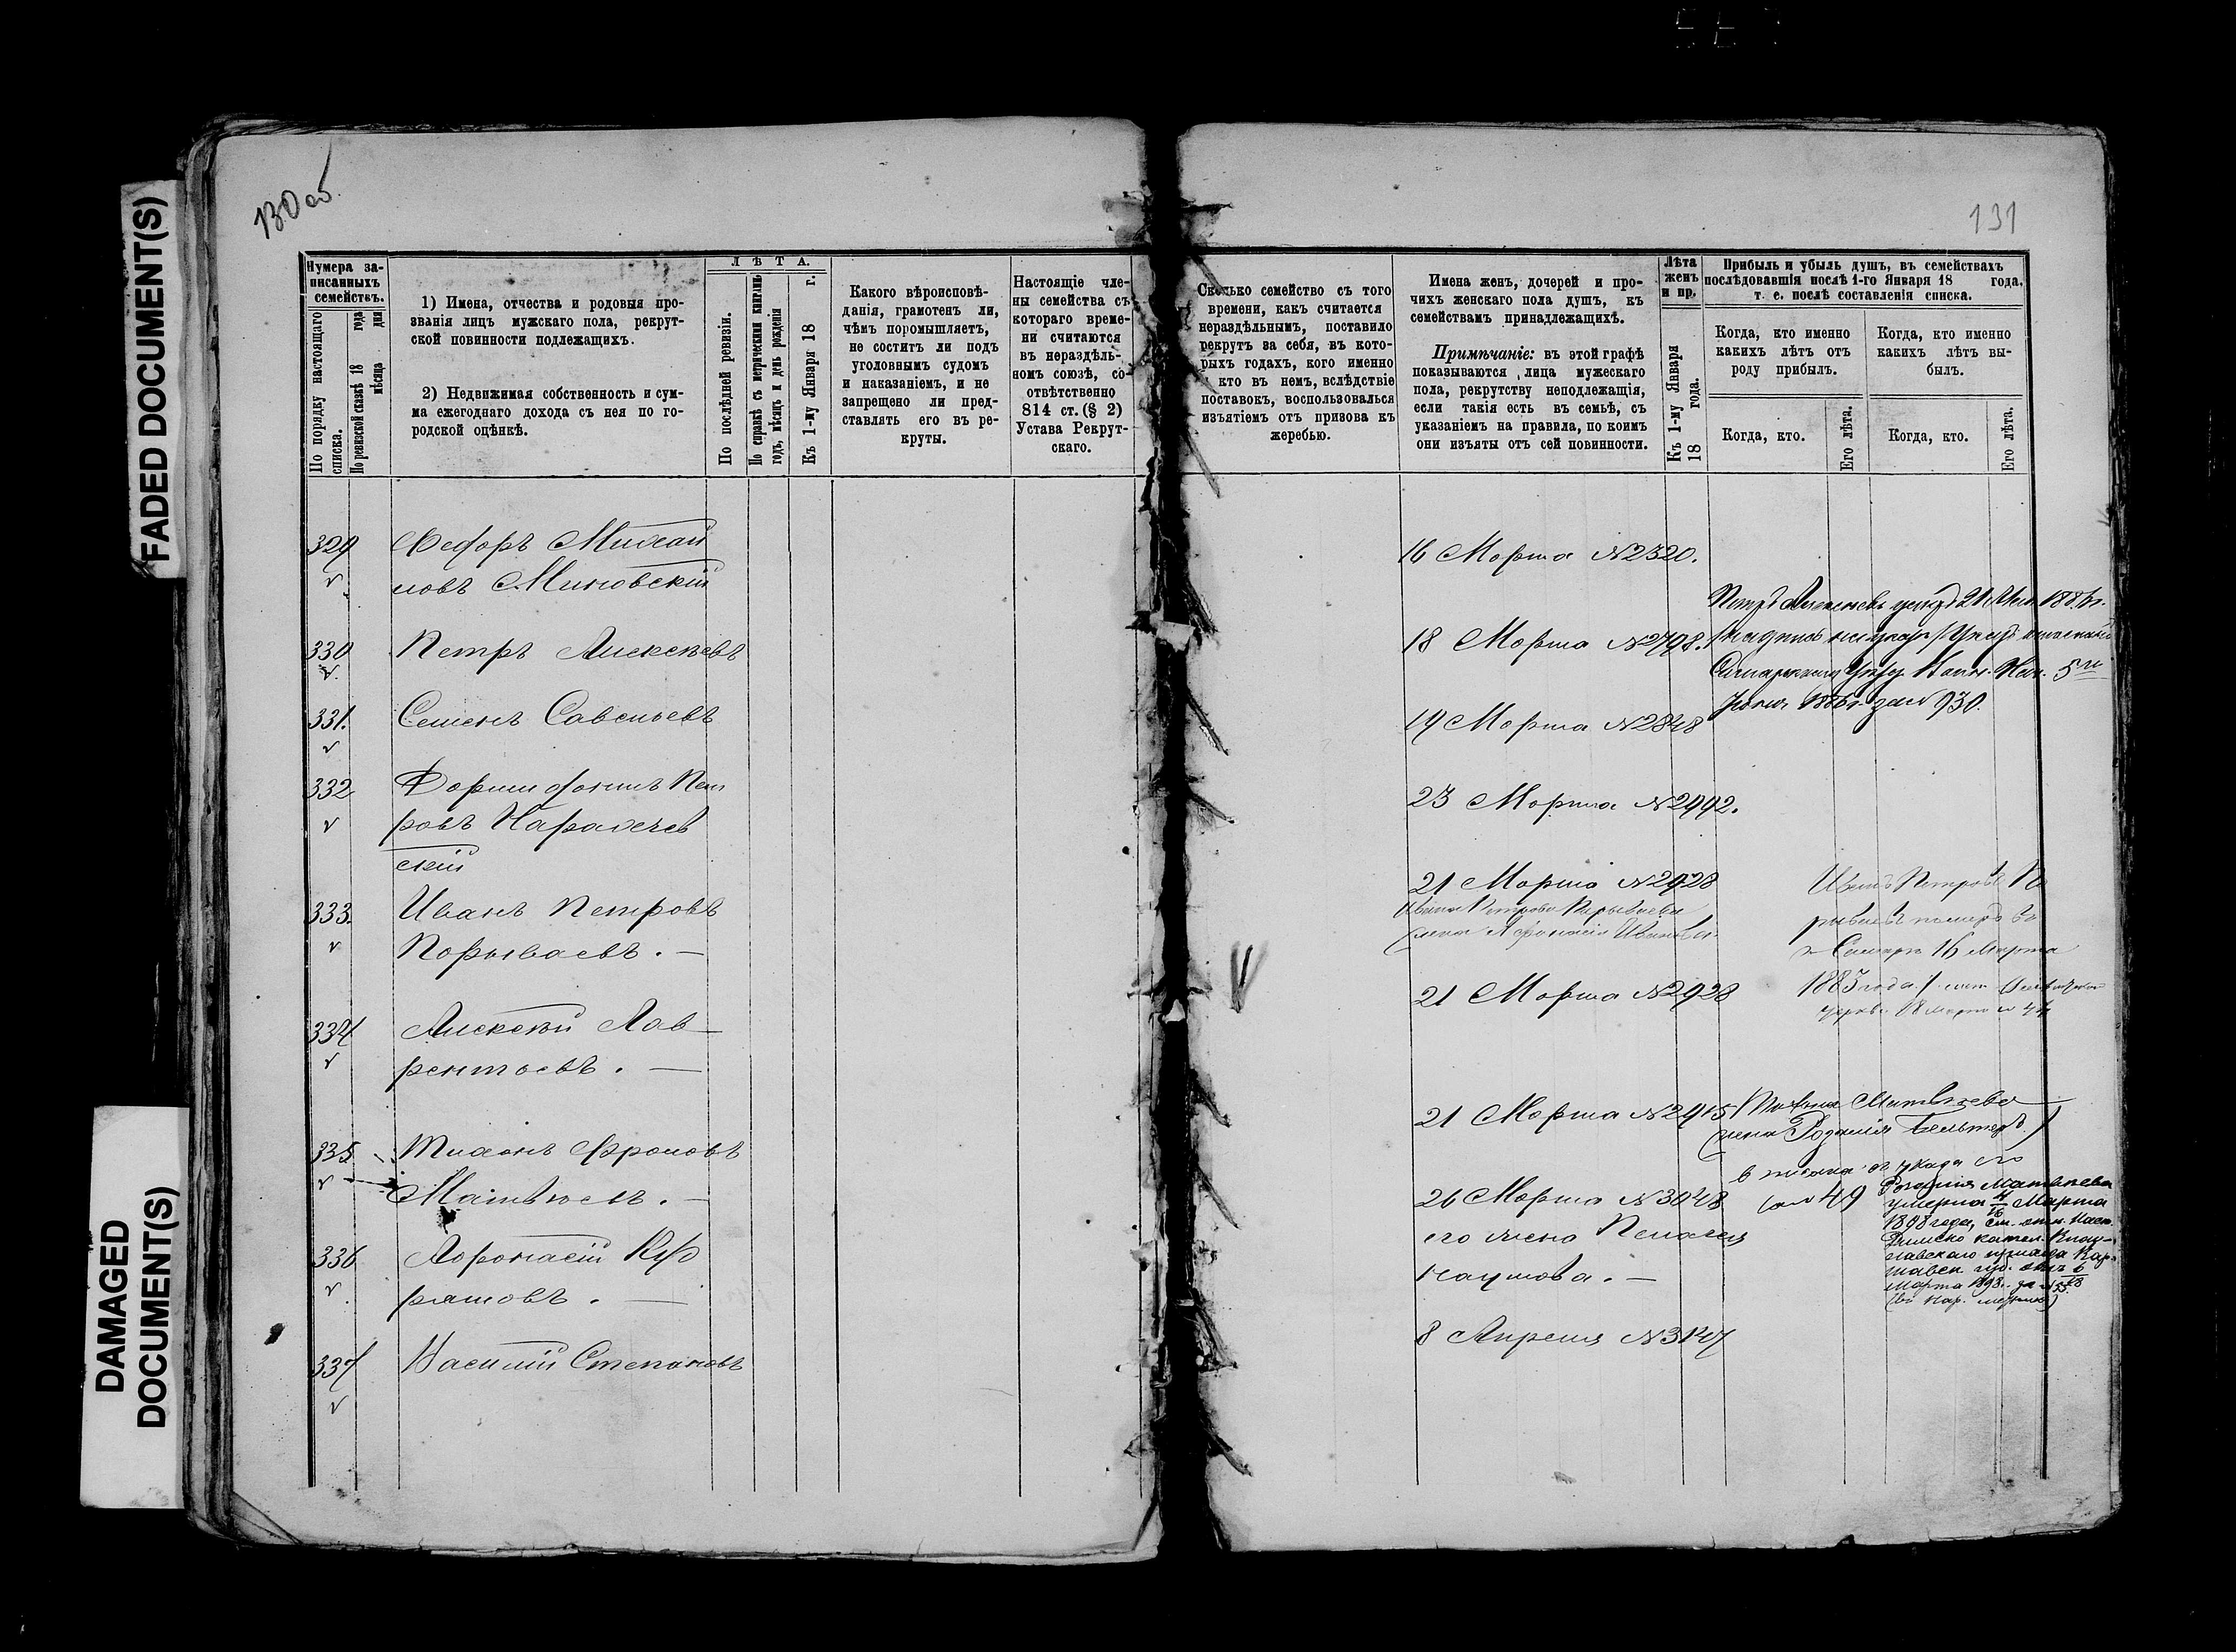 FADED DOCUMENT(S)
DAMAGED
DOCUMENT(S)
130 об.
Нумера за-
писанныхъ
семействъ.
По порядку настоящаго
списка.
По ревизской сказкѣ 18 года
мѣсяца дня
1) Имена, отчества и родовыя про-
званія лицъ мужскаго пола, рекрут-
ской повинности подлежащихъ.
2) Недвижимая собственность и сум-
ма ежегоднаго дохода съ нея по го-
родской оцѣнкѣ.
Л Ѣ Т А.
По послѣдней ревизіи.
По справкѣ съ метрическими книгами
годъ, мѣсяцъ и день рожденія
Къ 1-му Января 18 г.
Какого вѣроисповѣ-
данія, грамотенъ ли,
чѣмъ поромышляетъ,
не соститъ ли подъ
уголовнымъ судомъ
и наказаніемъ, и не
запрещено ли пред-
ставлять его въ ре-
круты.
Настоящіе чле-
ны семейства съ
котораго време-
ни считаются
въ нераздѣль-
номъ союзѣ, со-
отвѣтственно
814 ст. (§ 2)
Устава Рекрут-
скаго.
329 Ѳедоръ Михай
ловъ Миновскій
330 Петръ Алексѣевъ
331. Семенъ Савельевъ
332 Пет
ровъ
скій
333. Иванъ Петровъ
Порываевъ. —
334 Алексѣй Лав—
рентьевъ. —
335 Тихонъ Фроловъ
Матвѣевъ. —
336 Афонасій
337 Василій Степановъ
131
Сколько семейство съ того
времени, какъ считается
нераздѣльнымъ, поставило
рекрутъ за себя, въ кото-
рыхъ годахъ, кого именно
и кто въ немъ, вслѣдствіе
поставокъ, воспользовалься
изъятіемъ отъ призова къ
жеребью.
Имена женъ, дочерей и про-
чихъ женскаго пола душъ, къ
семействамъ принадлежащихъ.
Примѣчаніе: въ этой графѣ
показываются лица мужескаго
пола, рекрутству неподлежащія,
если такія есть въ семьѣ, съ
указаніемъ на правила, по коимъ
они изъяты отъ сей повинности.
Лѣта
женъ
и пр.
Къ 1-му Января
18 года.
Прибыль и убыль душъ, въ семействахъ
послѣдовавшія послѣ 1-го Января 18 года,
т. е. послѣ составленія списка.
Когда, кто именно
какихъ лѣтъ отъ
роду прибылъ.
Когда, кто именно
какихъ лѣтъ вы-
былъ.
Когда, кто.
Его лѣта.
Когда, кто.
Его лѣта.
16 Марта №2320.
Петръ Алексѣевъ 21 1886 г.
18 Марта №2798.
5го
1886 г. за № 930.
19 Марта №2848
23 Марта №2992.
21 Марта №2928
Ивана Петрова Порываева
жена Афанасія Иванова
Иванъ Петровъ По
рываевъ померъ въ
г. Самарѣ 16 Марта
1883 года
21 Марта №2928
21 Марта №2915
Матвѣева
(жена Розалія
26 Марта №3048
его жена Пелагея
Наумова. —
№ 49
Розалія Матвѣева
умерла 4/16 Марта
1898 года, см.
8 Апреля №3127